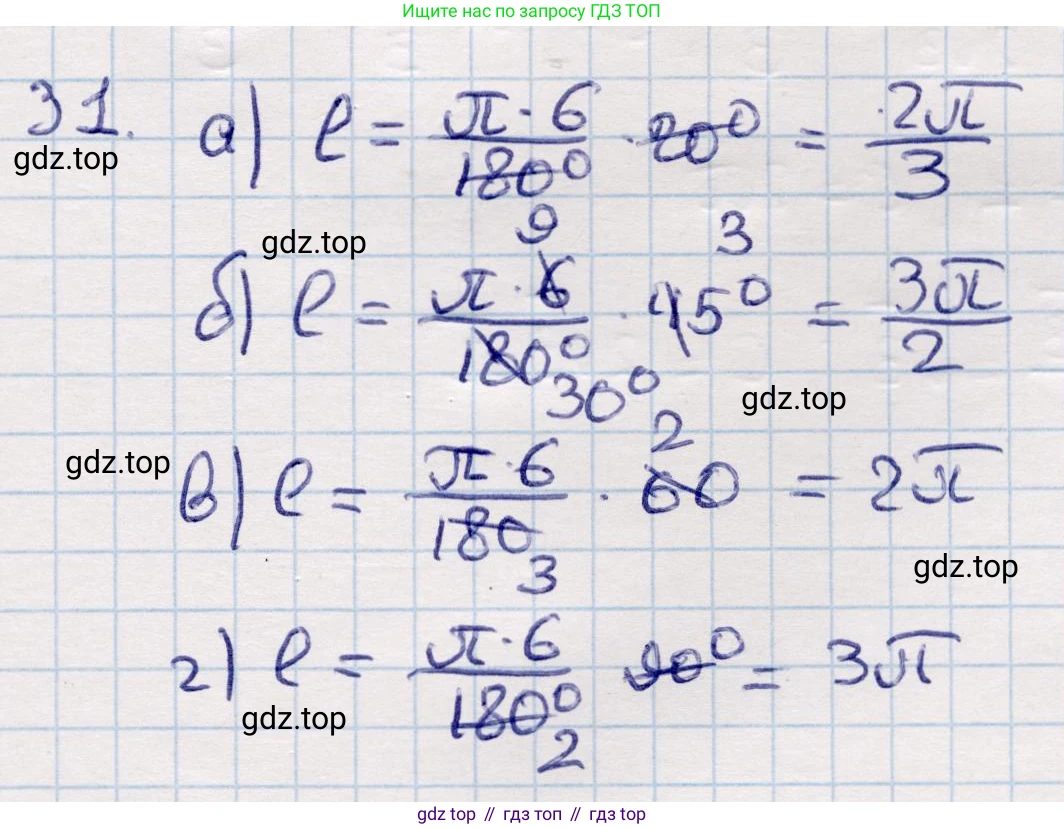 Ищите нас по запросу ГДЗ ТОП
31. а) l = π · 6 / 180° · 20° = 2π / 3
gdz.top
9
gdz.top
3
б) l = π · 6 / 180° · 45° = 3π / 2
30°
gdz.top
2
gdz.top
в) l = π · 6 / 180 · 60 = 2π
3
gdz.top
г) l = π · 6 / 180° 90° = 3π
gdz.top
2
gdz top // гдз топ // гдз top